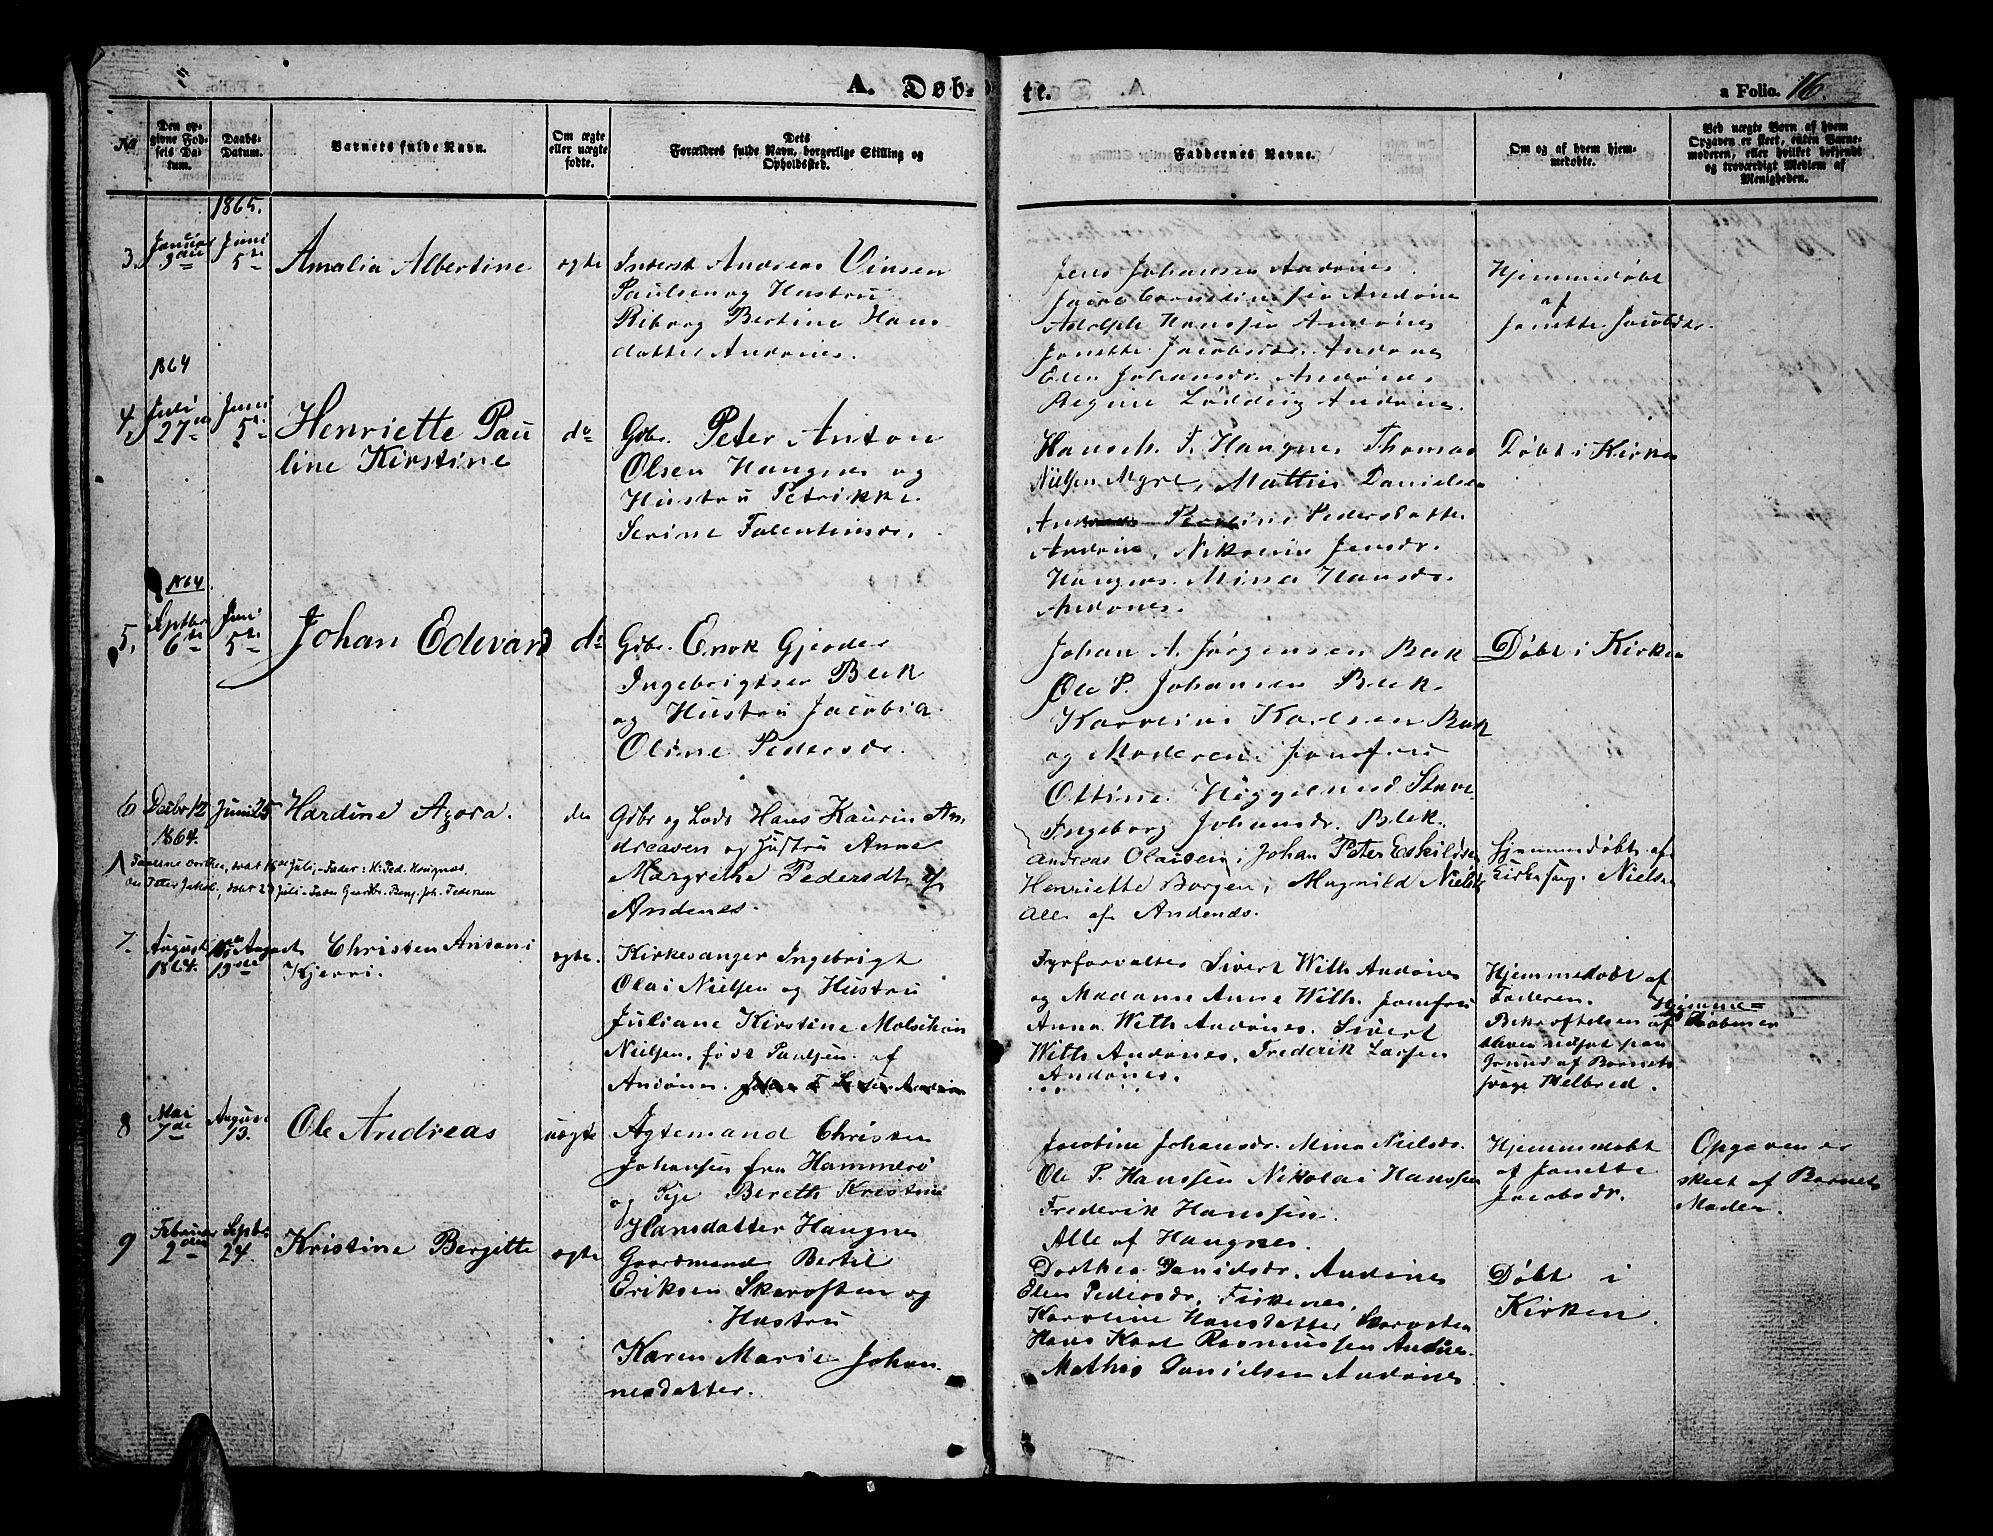 A. Døb-
te.
a Folio. 16.
No
Den op-
givne Fød-
sels Da-
tum.
Daabs-
Datum.
Barnets fulde Navn.
Om ægte
eller uægte
fødte.
Dets
Forældres fulde Navn, borgerlige Stilling og
Opholdssted.
Faddernes Navne.
Om og af hvem hjem-
medøbte.
Ved uægte Børn af hvem
Opgaven er skeet, enten Barne-
moderen, eller hvilket bekjendt
og troværdigt Medlem af
Menigheden.
1865.
3.
Januar
Juni
5te
Amalia Albertine
ægte
Inderst Andreas Vinsen
Paulsen og Hustru
Riborg Bertine Hans
datter Andønes.
Jens Johansen Andønes
Andønes
Adolph Hanssen Andønes
Janette Jacobsdr. Andønes
Elen Johansdr. Andønes
Regine Lødding Andønes.
Hjemmedøbt
af
Janette Jacobsdr.
1864
4,
Juli
27
Juni
5te
Henriette Pau
line Kirstine
do
Gdbr. Peter Anton
Olsen Haugnes og
Hustru Petrikke
Serine Falentinsdr.
Hansch. F. Haugnes Thomas
Nielsen Myre, Mathis Danielsen
Pedersdatter
Andønes, Nikoline Jensdr.
Haugnes. Mina Hansdr.
Andønes.
Døbt i Kirken
1864
5,
Septbr
6te
Juni
5te
Johan Edevard
do
Gdbr. Enok Gjæder
Ingebrigtsen Bleik
og Hustru Jacobia
Oline Pedersdr.
Johan A. Jørgensen Bleik
Ole P. Johansen Bleik.
Karoline Karlsen Bleik
og Moderen. Jomfru
Ottine Heggelund Stave
Ingeborg Johansdr. Bleik.
Døbt i Kirken
6
Decbr 12
1864.
Juni 25
Hardine Azora.
do
Gdbr og Lods Hans Kaurin An
dreasen og Hustru Anne
Margrethe Pedersdt. af
Andenes.
Andreas Olaisen, Johan Peter Eskildsen
Henriette Borgen, Magnild Niels
Alle af Andenæs.
Hjemmedøbt af
Kirkesang. Nielsen
7.
August
1864.
August
13de
Christen Antoni
Kjerri.
ægte.
Kirkesanger Ingebrigt
Olai Nielsen og Hustru
Juliane Kirstine Molschiøn
Nielsen, født Paulsen. af
Andønes.
Fyrforvalter Sivert With Andønes
og Madame Anne With. Jomfru
Anna With Andønes. Sivert
With Andønes. Frederik Larsen
Andønes.
Hjemmedøbt af
Faderen.
Bekræftelsen af Hjemme=
Døbensen
bleven udsat paa
Grund af Barnets
svage Helbred.
8
Mai
7de
August
13.
Ole Andreas
uægte
Ægtemand Christen
Johansen fra Hammerø
og Pige Bereth Kristine
Hansdatter Haugnes
Jacobine Johansdr. Mina Nielsdr.
Ole P. Hanssen Nikolai Hanssen
Frederik Hanssen.
Alle af Haugnes.
Hjemmedøbt
af Janette
Jacobsdr.
Opgaven er
skeet af Barnets
Moder.
9
Februar
2den
Septbr
24.
Kristine Bergitte
ægte
Gaardmand Bertil
Eriksen Skarvsten og
Hustru
Karen Marie Johan
nesdatter.
Dorthea Danielsdr. Andønes
Elen Pedersdr. Fiskenes.
Karoline Hansdatter Skarvsten
Hans Kaal Rasmussen Andønes.
Mathis Danielsen Andønes
Døbt i
Kirken.